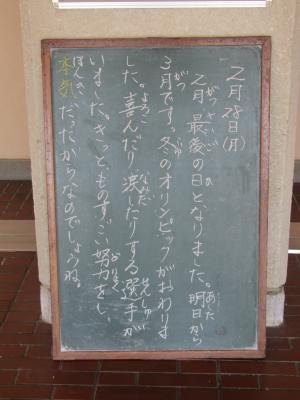 2月28日(月)
2月最後の日となりました。明日から
3月です。冬のオリンピックがおわりま
した。喜んだり涙したりする選手が
いました。きっとものすごい努力をし、
本気だったからなのでしょうね。